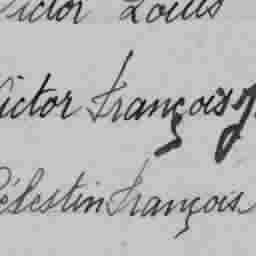 Victor Louis
Victor François
Célestin François